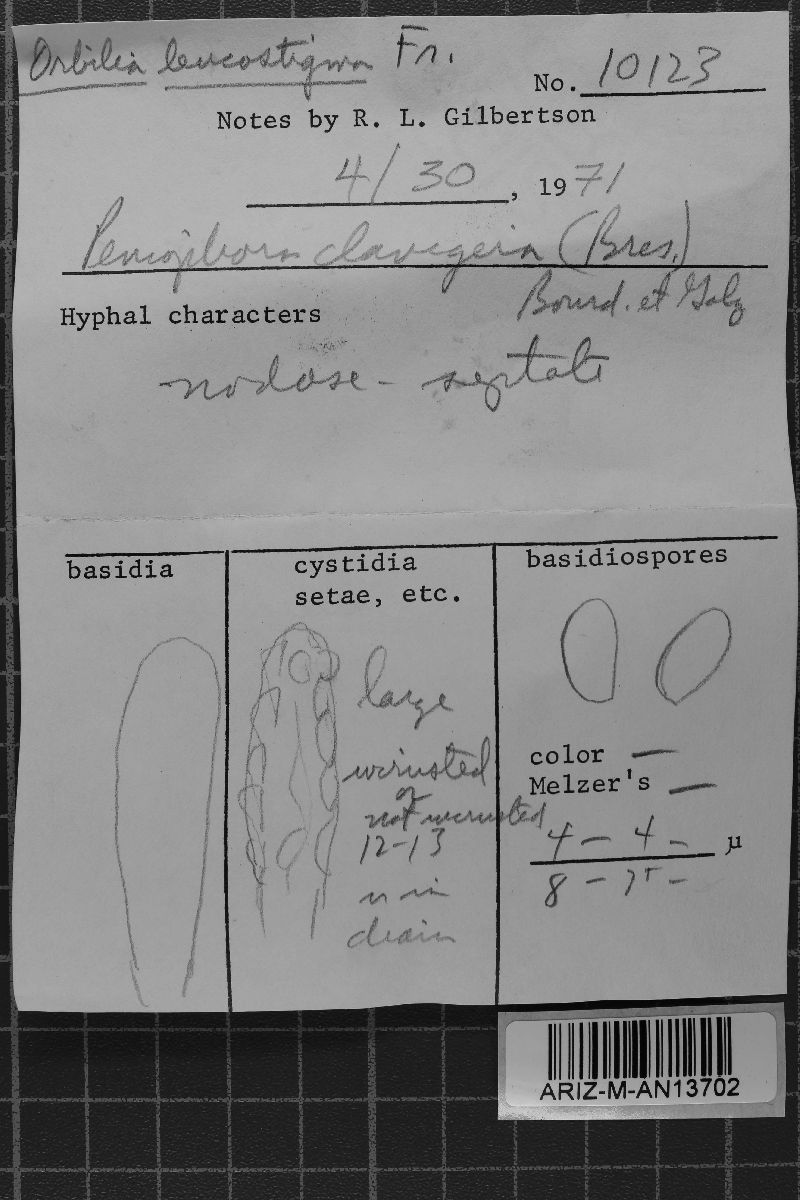 Orbilia leucostigma Fr.
No. 10123
Notes by R. L. Gilbertson
4/30, 1971
Peniophora clavigera (Bres.)
Bourd. et Galz
Hyphal characters
nodose - septate
basidia
cystidia
setae, etc.
basidiospores
large
incrusted
or
not incrusted
12-13
in
diam
color —
Melzer's —
4 - 4 - µ
8 - 7 -
ARIZ-M-AN13702